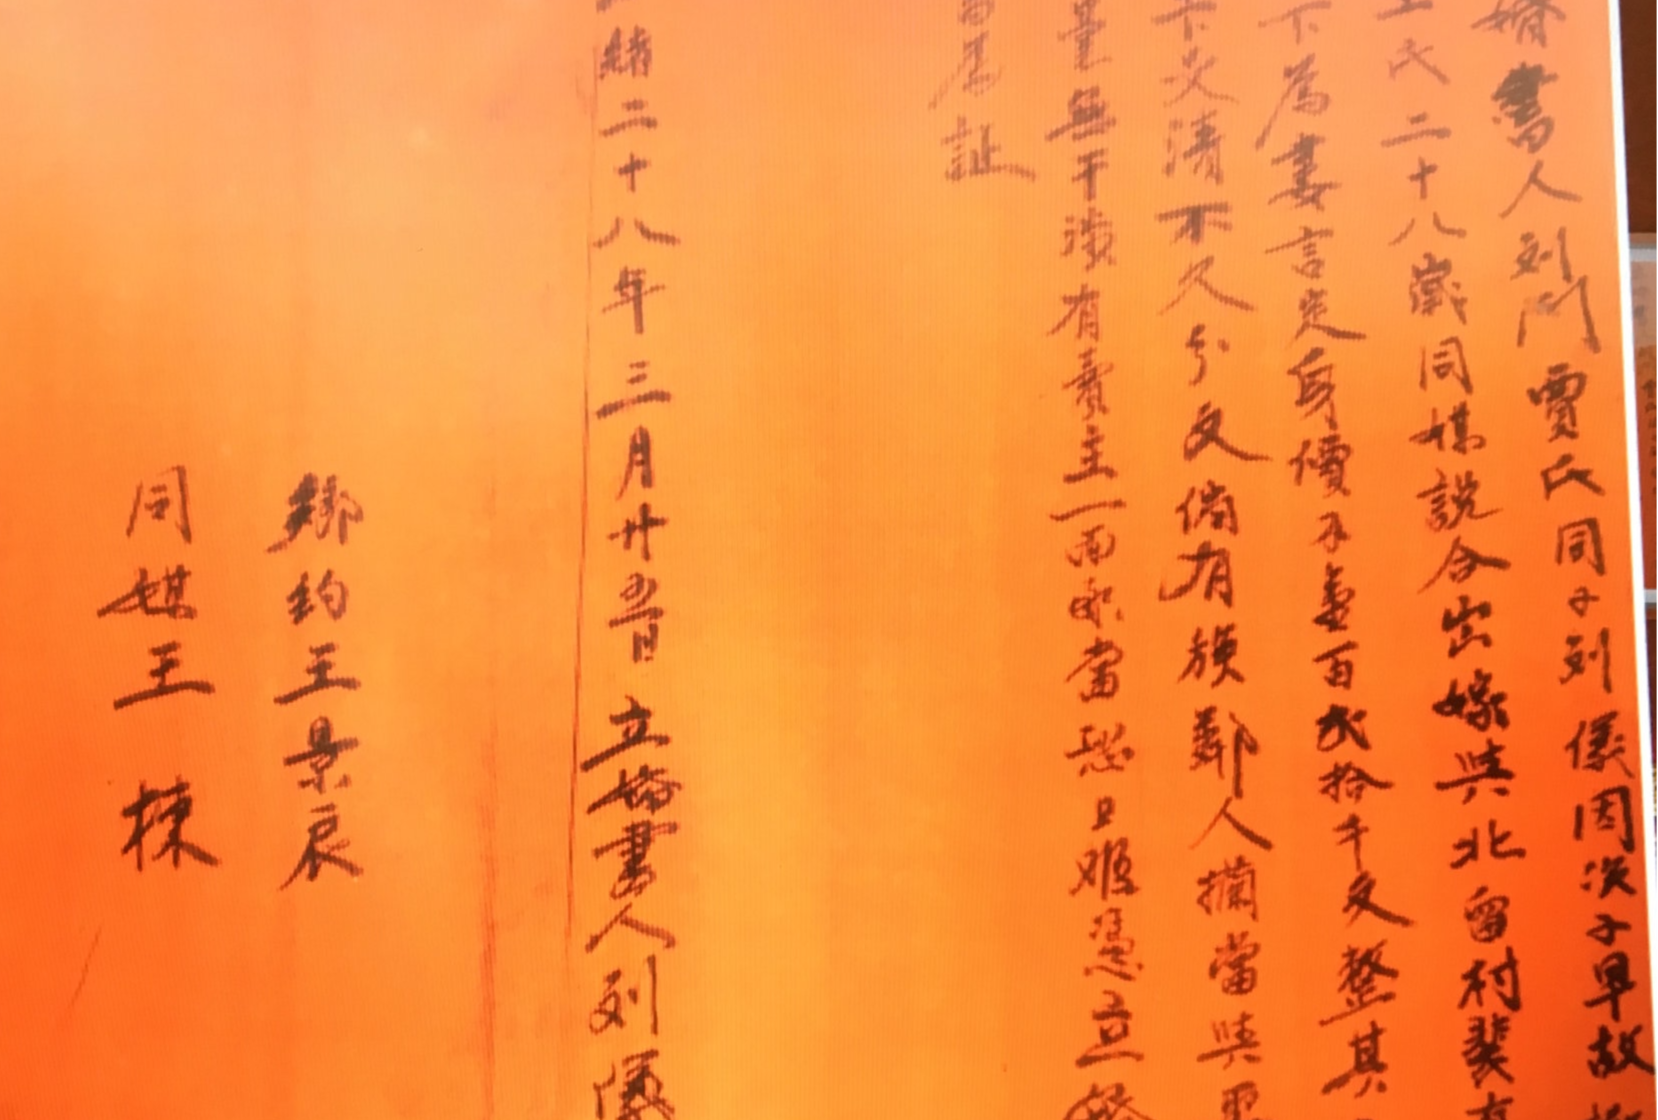 婚書人刘門賈氏同子刘儀因次子早故
氏二十八歲同媒說合出嫁與北留村裴
下為妻言定身價錢壹百弍拾千文整其
下交清不欠分文倘有族鄰人攔當與
無干瀆有賣主一面承當恐口难憑立
為証
緒二十八年三月廿五日立婚書人刘儀
鄉約王景辰
同媒王棟